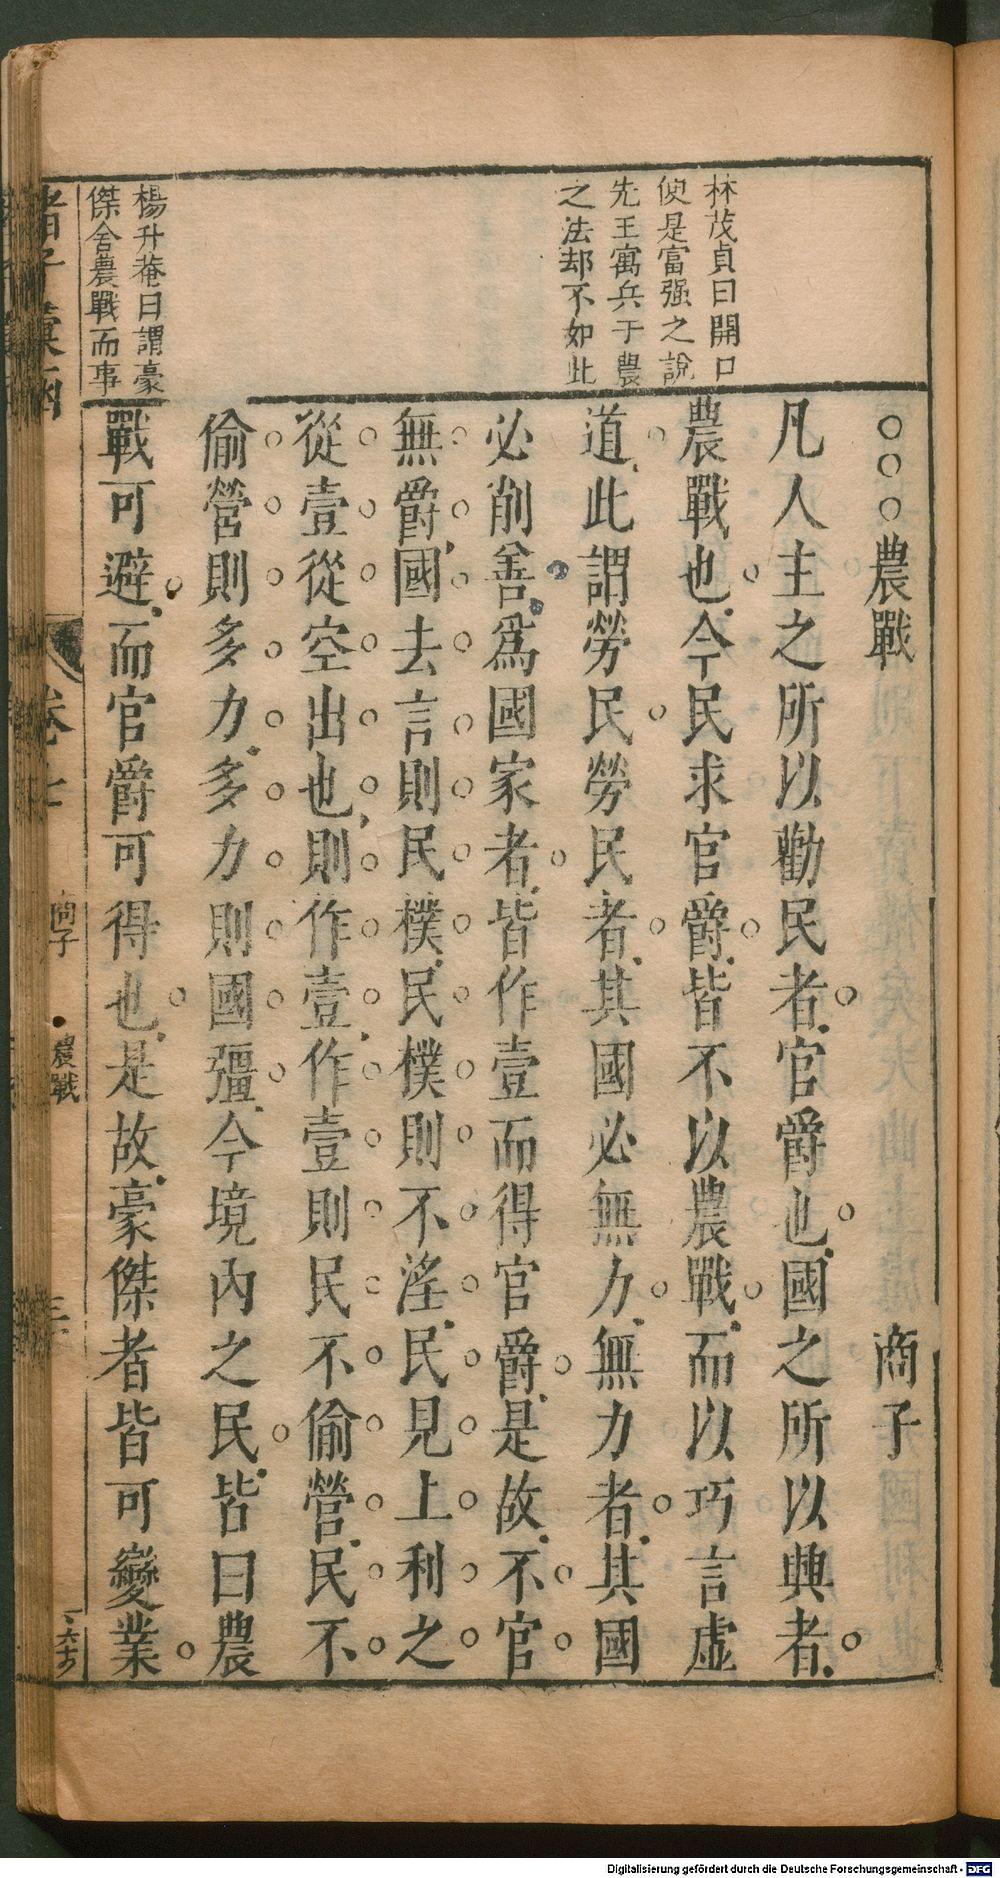 林茂貞曰開口
便是富强之說
先王寓兵于農
之法却不如此
楊升菴曰謂豪
傑舍農戰而事
○○○農戰 商子
凡人主之所以勸民者官爵也國之所以興者
農戰也今民求官爵皆不以農戰而以巧言虛
道此謂勞民勞民者其國必無力無力者其國
必削善爲國家者皆作壹而得官爵是故不官
無爵國去言則民樸民樸則不淫民見上利之
從壹從空出也則作壹作壹則民不偷營民不
偷營則多力多力則國彊今境內之民皆曰農
戰可避而官爵可得也是故豪傑者皆可變業
諸子彙函
卷七
商子
農戰
三
Digitalisierung gefördert durch die Deutsche Forschungsgemeinschaft - DFG